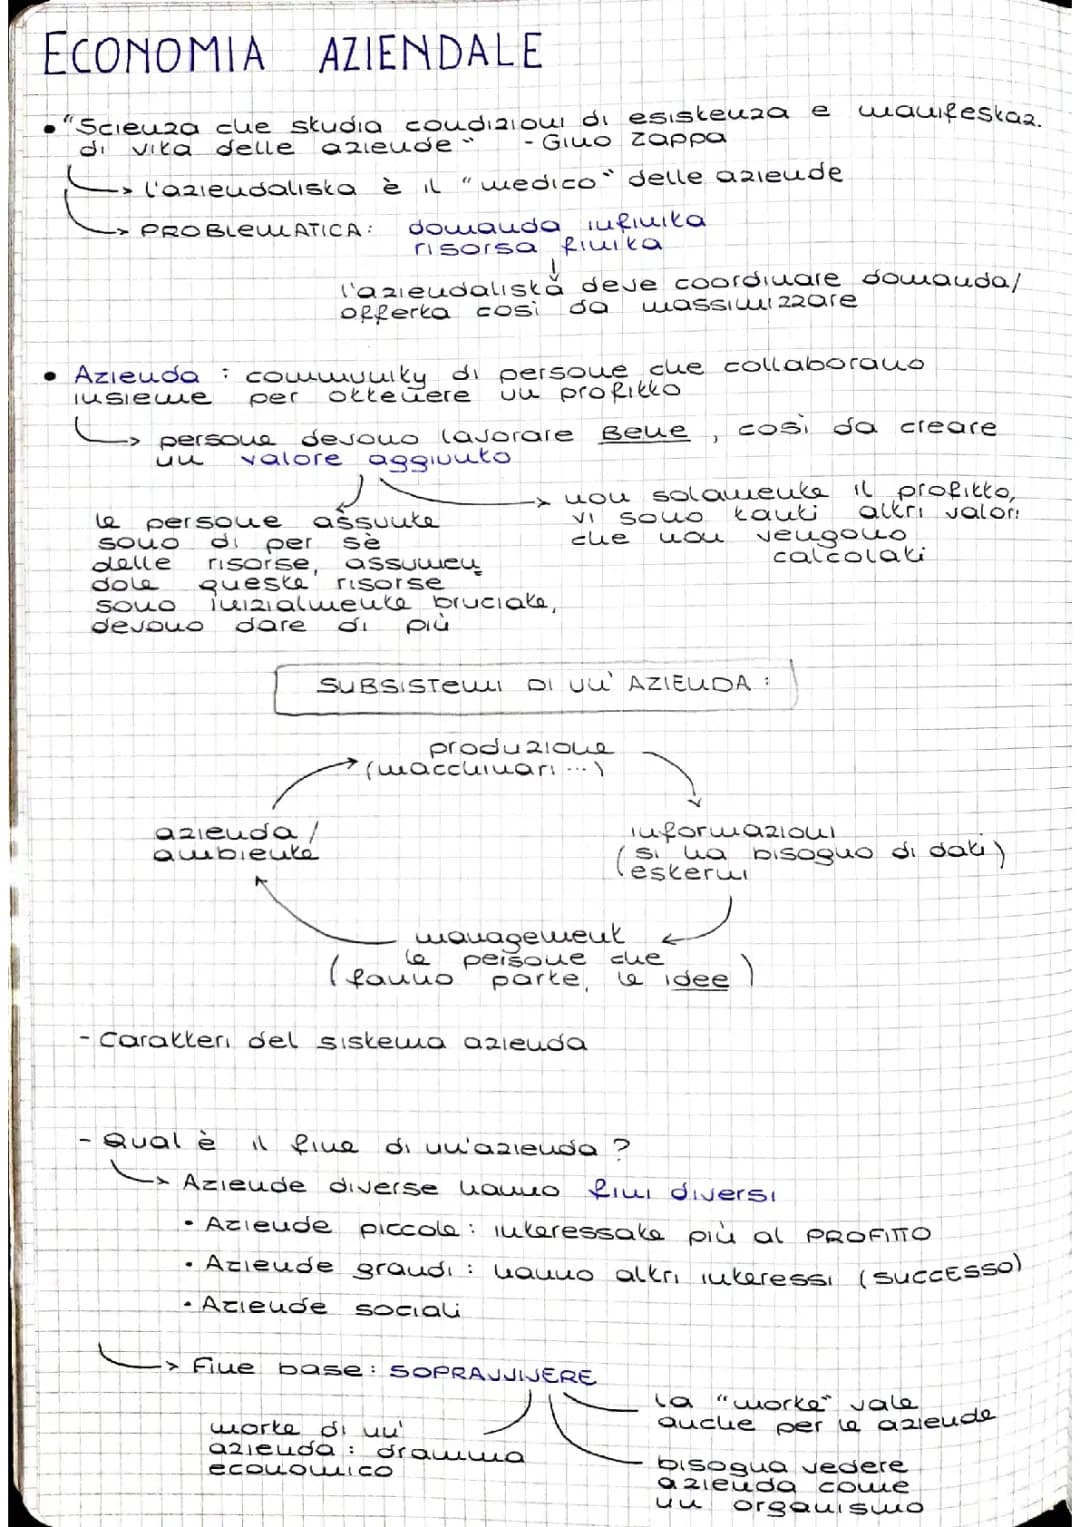 ECONOMIA AZIENDALE
• "Scienza che studia condizioni di esistenza e manifestaz.
di vita delle aziende" - Gino Zappa
→ l'aziendalista è il "medico" delle aziende
→ PROBLEMATICA: domanda infinita
risorsa finita
↓
l'aziendalista deve coordinare domanda/
offerta così da massimizzare
• Azienda : community di persone che collaborano
insieme per ottenere un profitto
→ persone devono lavorare Bene, così da creare
un valore aggiunto
→ non solamente il profitto,
vi sono tanti altri valori
che non vengono
calcolati
le persone assunte
sono di per sè
delle risorse, assumen
dole queste risorse
sono inizialmente bruciate,
devono dare di più
SUBSISTEMI DI UN' AZIENDA :
produzione
(macchinari ...)
azienda /
ambiente
informazioni
(si ha bisogno di dati)
esterni
management
(le persone che
fanno parte, le idee)
- Caratteri del sistema azienda
- Qual è il fine di un'azienda ?
→ Aziende diverse hanno fini diversi
• Aziende piccole : interessate più al PROFITTO
• Aziende grandi : hanno altri interessi (SUCCESSO)
• Aziende sociali
→ Fine base : SOPRAVVIVERE
la "morte" vale
anche per le aziende
morte di un'
azienda : dramma
economico
bisogna vedere
azienda come
un organismo